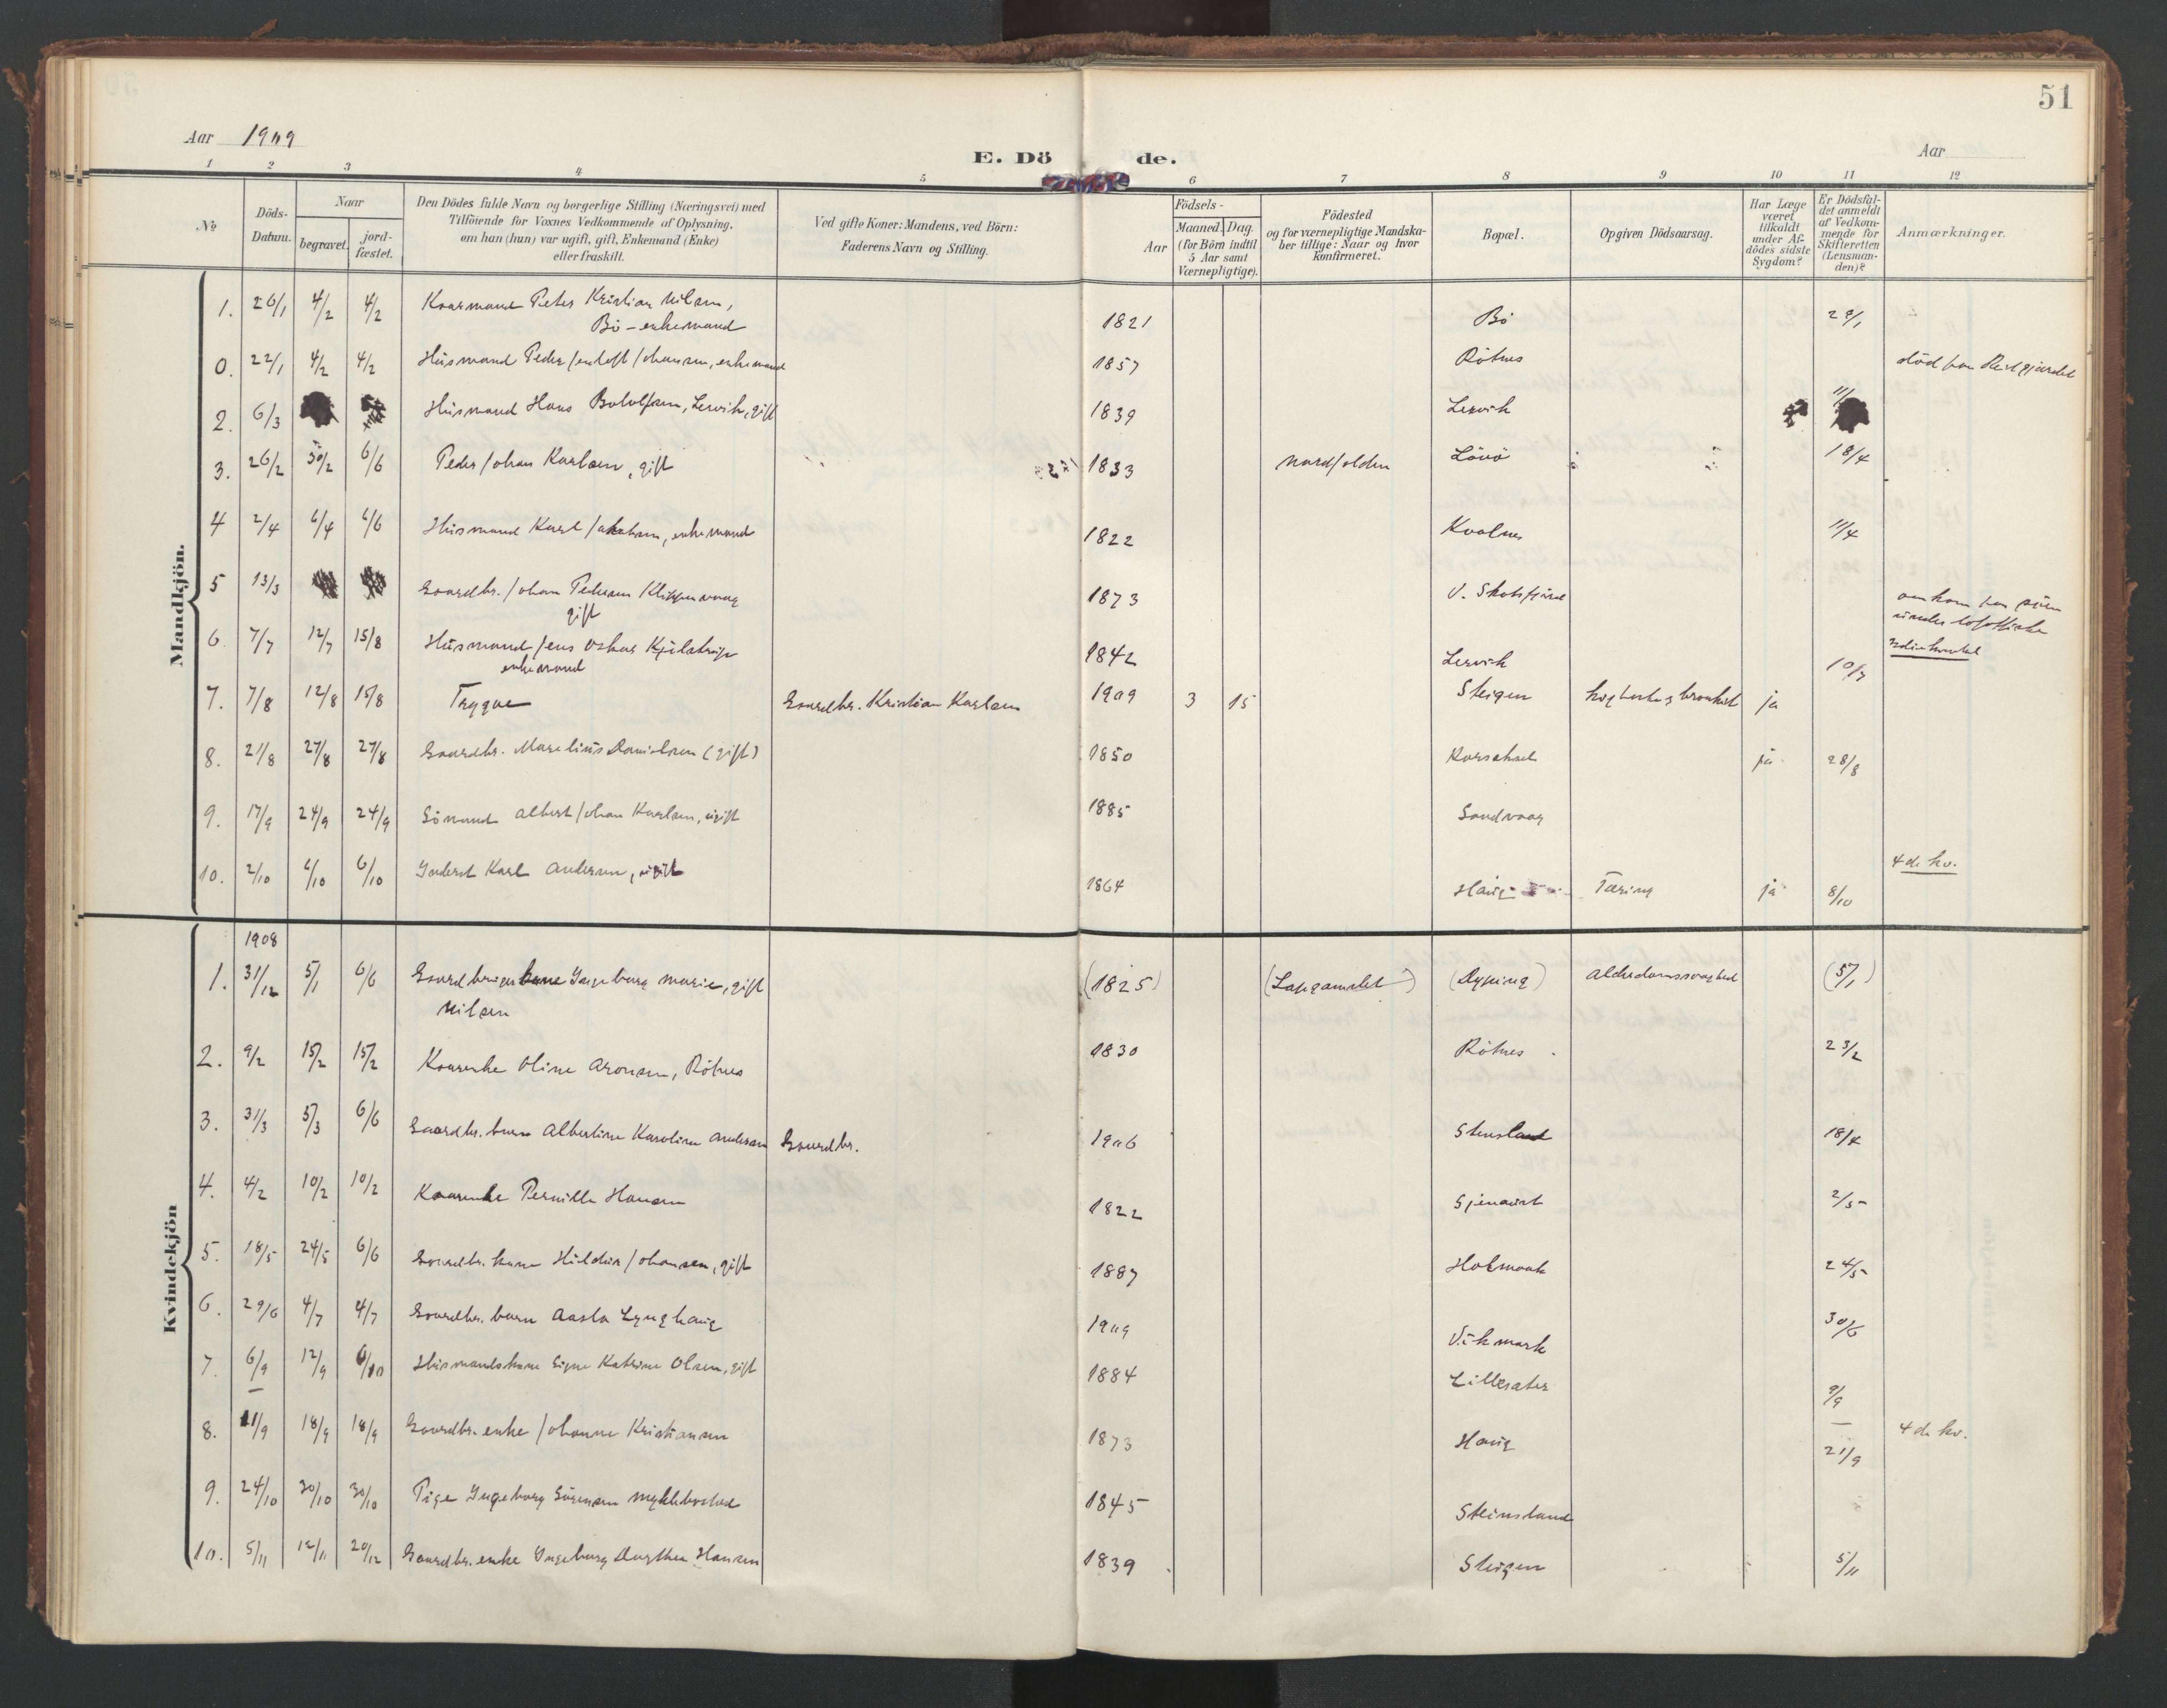 51
Aar 1909
E. Dö de.
Aar
1 2 3 4 5 6 7 8 9 10 11 12
No
Döds-Datum.
Naar
begravet.
jord-fæstet.
Den Dödes fulde Navn og borgerlige Stilling (Næringsvei) med
Tilföiende for Voxnes Vedkommende af Oplysning,
om han (hun) var ugift, gift, Enkemand (Enke)
eller fraskilt.
Ved gifte Koner: Mandens, ved Börn:
Faderens Navn og Stilling.
Födsels-
Aar
Maaned. Dag.
(for Börn indtil
5 Aar samt
Værnepligtige).
Födested
og for værnepligtige Mandska-
ber tillige: Naar og hvor
konfirmeret.
Bopæl.
Opgiven Dödsaarsag.
Har Læge
været
tilkaldt
under Af-
dödes sidste
Sygdom?
Er Dödsfal-
det anmeldt
af Vedkom-
mende for
Skifteretten
(Lensman-
den)?
Anmærkninger.
Mandkjön.
1. 26/1 4/2 4/2 Kaarmand Peter Kristian Nilsen, 1821 Bö 29/1
Bö - enkemand
0. 22/1 4/2 4/2 Husmand Peder Johansen, enkemand 1857 Rötnes död paa
2. 6/3 Husmand Hans Lervik, gift 1839 Lervik 11/
3. 26/2 30/2 6/6 Peder Johan Karlsen, gift 1833 Nordfolden Lövö 18/4
4 2/4 6/4 6/6 Husmand Karl Jakobsen, enkemand 1822 Kvalnes 11/4
5 13/3 Gaardbr. Johan Pedersen 1873 V. Skotsfjord
gift
omkom paa sjöen
under lofotfiske
6. 7/7 12/7 15/8 Husmand Jens Oskar 1842 Lervik 10/7
enkemand
7. 7/8 12/8 15/8 Trygve Gaardbr. Kristian Karlsen 1909 3 15 Steigen ja
8. 21/8 27/8 27/8 Gaardbr. Marelius Danielsen (gift) 1850 ja 28/8
9. 17/9 24/9 24/9 Sömand Albert Johan Karlsen, ugift 1885 Sandvaag
10. 2/10 6/10 6/10 Inderst Karl Andersen, ugift 1864 Haug Tæring ja 8/10 4de kv.
Kvindekjön
1908
1. 31/12 5/1 6/6 Gaardbruger kone Ingeborg Marie, gift (1825) (Dyping) Alderdomssvaghed (5/1)
Nilsen
2. 9/2 15/2 15/2 Kaarenke Oline Aronsen, Rötnes 1830 Rötnes 23/2
3. 31/3 5/3 6/6 Gaardbr. barn Albertine Karoline Andersen Gaardbr. 1906 Stensland 18/4
4. 4/2 10/2 10/2 Kaarenke Pernille Hansen 1822 2/5
5. 18/5 24/5 6/6 Gaardbr. kone Hildur Johansen, gift 1887 Holmaak 24/5
6. 29/6 4/7 4/7 Gaardbr. barn Aasta Lynghaug 1909 Vikmark 30/6
7. 6/9 12/9 6/10 Husmandskone Signe Katrine Olsen, gift 1884 Lillesæter 9/9
8. 11/9 18/9 18/9 Gaardbr. enke Johanne Kristiansen 1873 Haug 21/9 4de kv.
9. 24/10 30/10 30/10 Pige Ingeborg Sörensen Myklebostad 1845 Steinsland
10. 5/11 12/11 20/12 Gaardbr. enke Ingeborg Dorthea Hansen 1839 Steigen 5/11